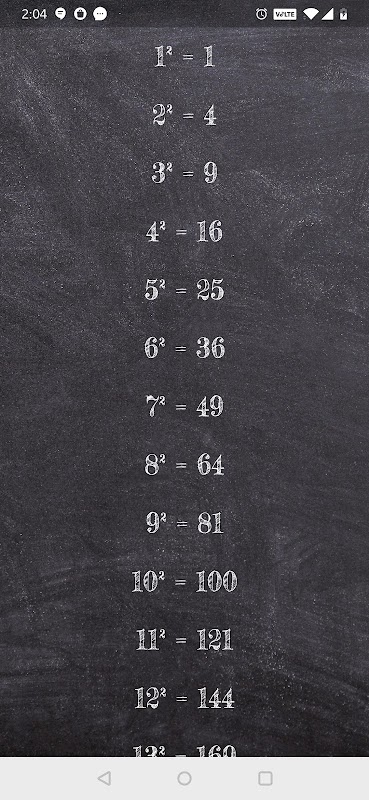 2:04 VoLTE
1² = 1
2² = 4
3² = 9
4² = 16
5² = 25
6² = 36
7² = 49
8² = 64
9² = 81
10² = 100
11² = 121
12² = 144
13² = 169